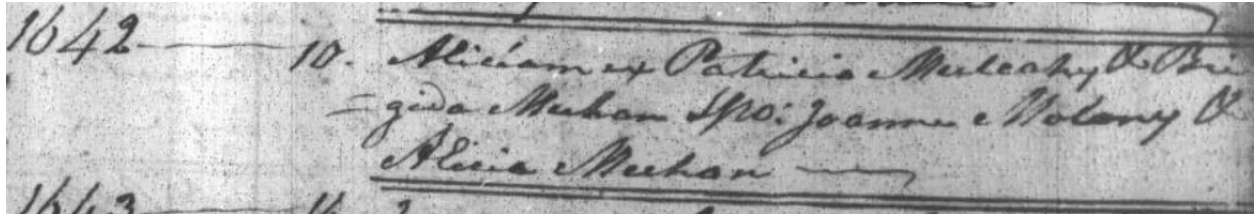 1642 10. Aliciam ex Patricio Mulcahy & Bri
= gida Meehan Spo: Joanne Molony &
Alicia Meehan
1643